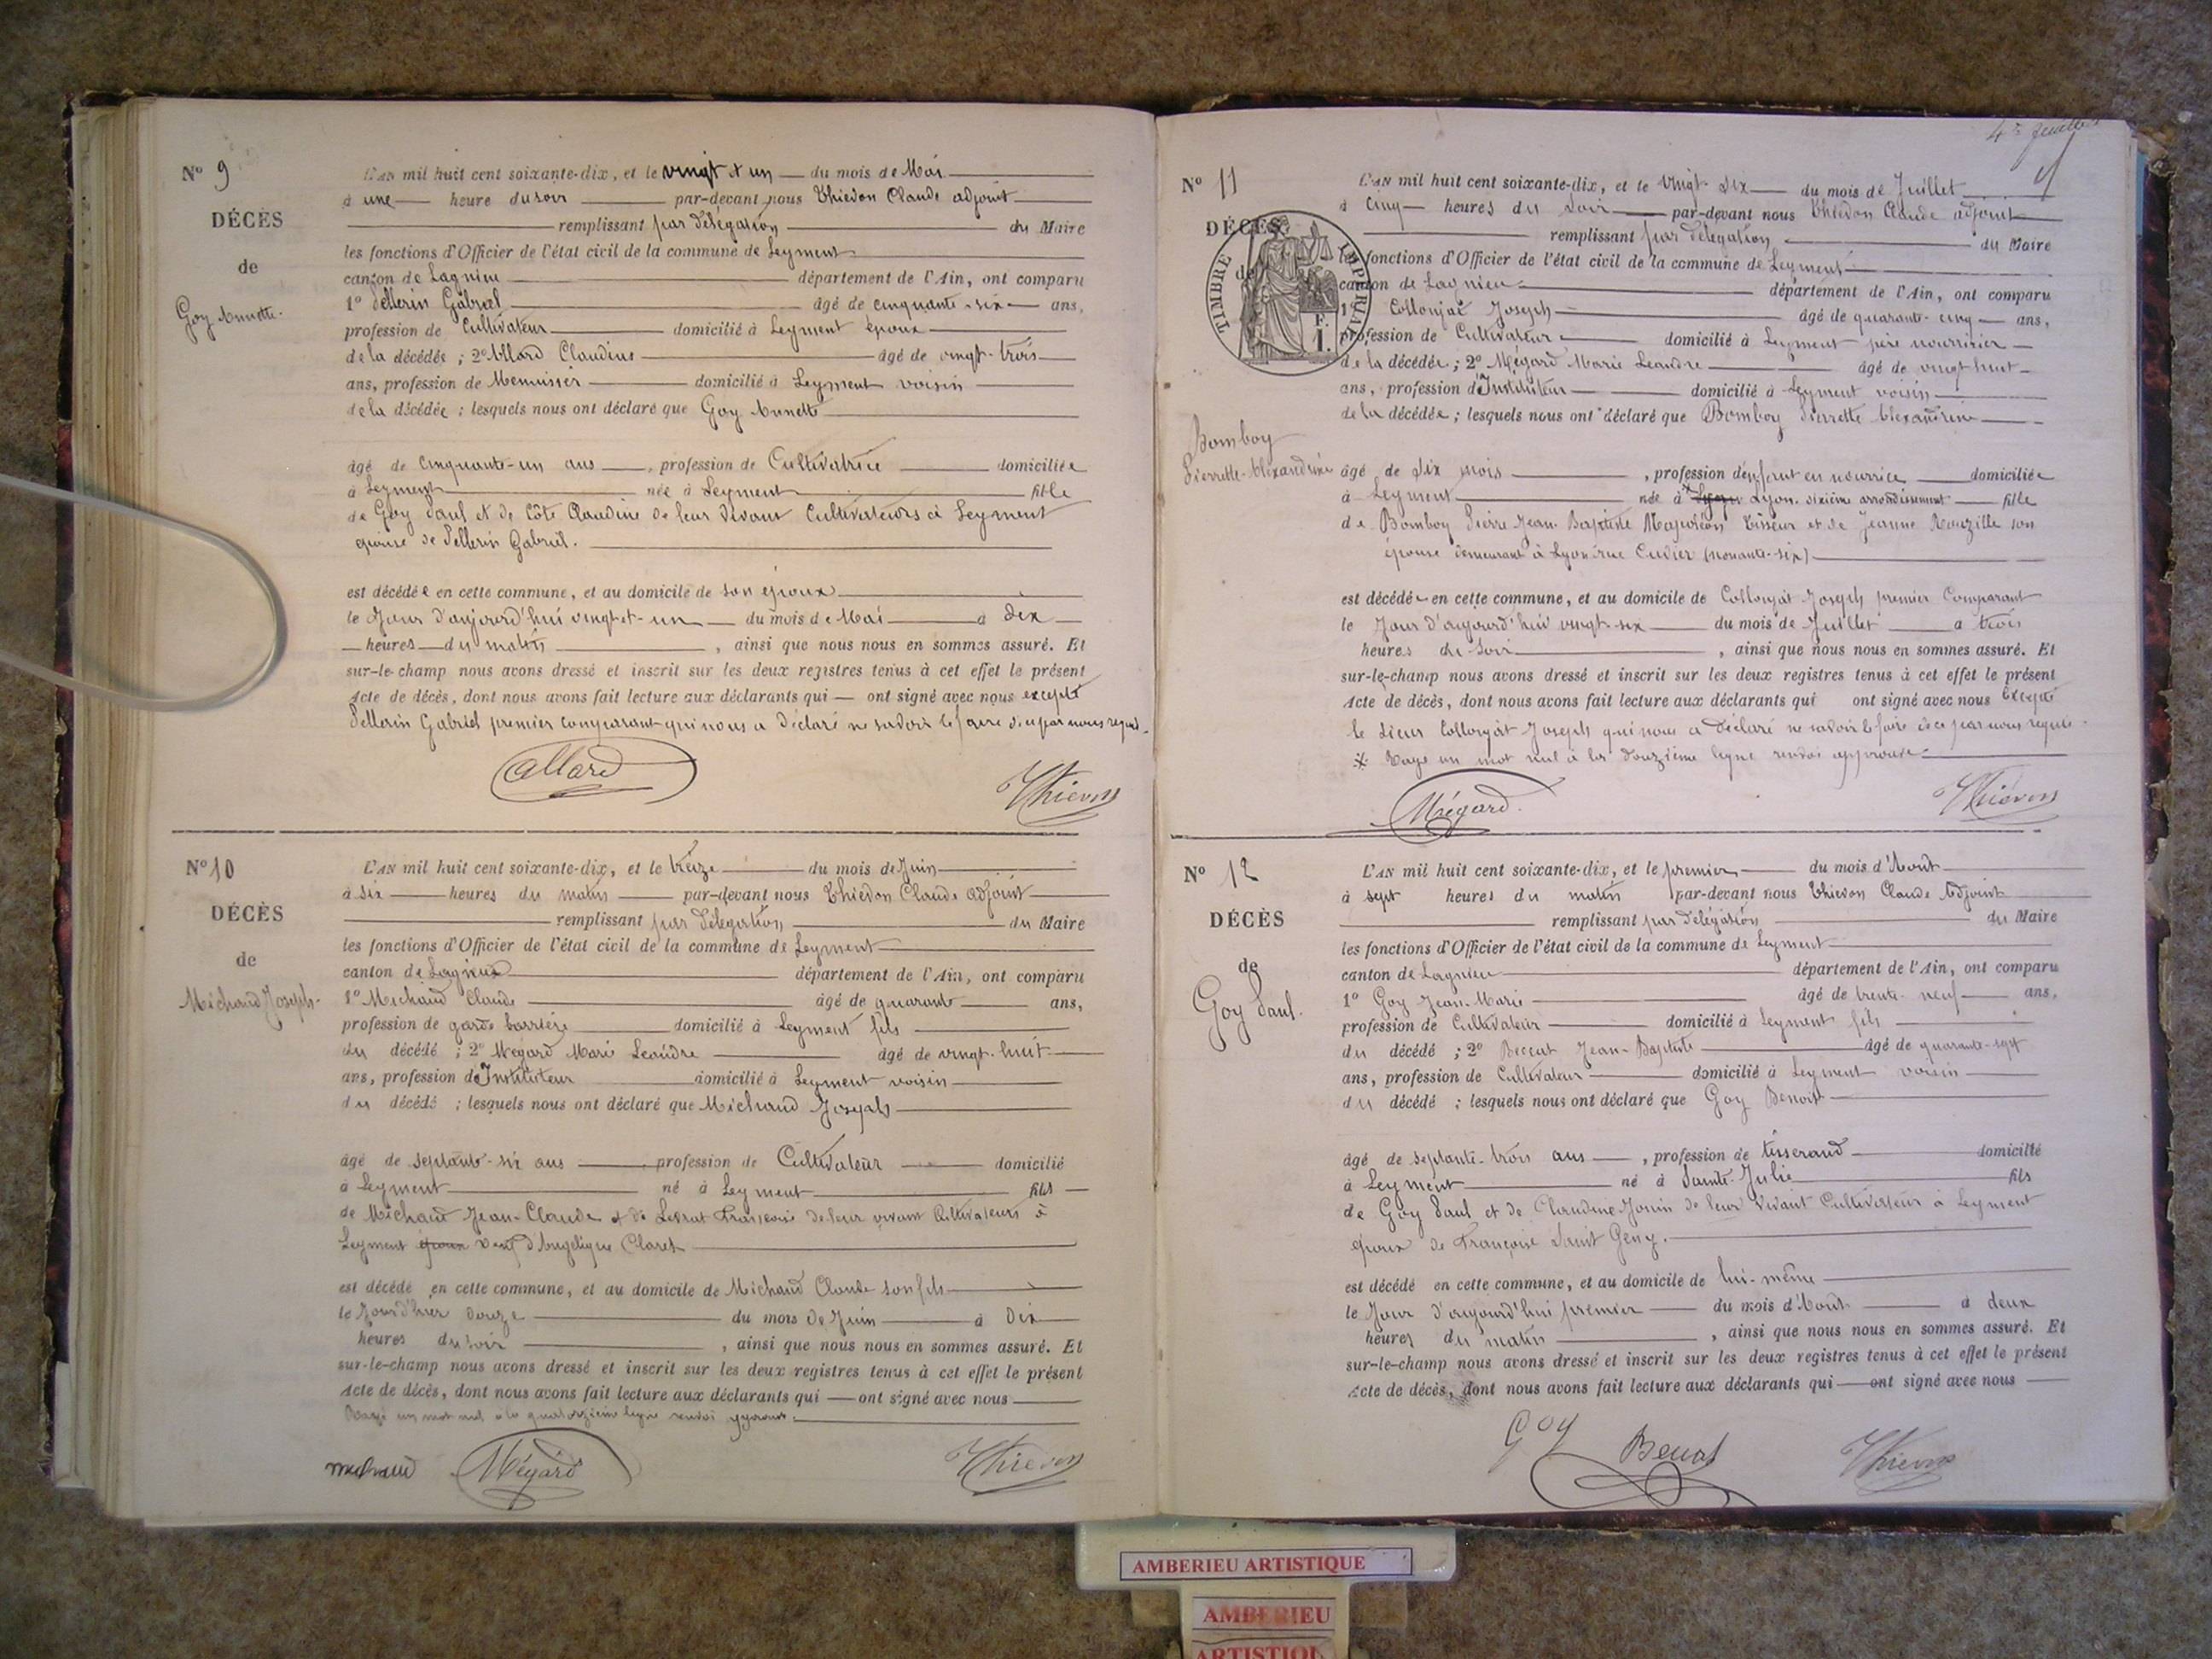 Nº 9
DÉCÈS
de
Goy Annette.
L'AN mil huit cent soixante-dix, et le vingt et un du mois de Mai
à une heure du soir par-devant nous Thievon Claude adjoint
remplissant par délégation du Maire
les fonctions d'Officier de l'état civil de la commune de Leyment
canton de Lagnieu département de l'Ain, ont comparu
1º Pellerin Gabriel âgé de cinquante-six ans,
profession de Cultivateur domicilié à Leyment époux
de la décédée ; 2º Allard Claudius âgé de vingt-trois
ans, profession de Menuisier domicilié à Leyment voisin
de la décédée ; lesquels nous ont déclaré que Goy Annette
âgé de cinquante-un ans, profession de Cultivatrice domiciliée
à Leyment née à Leyment fille
de Goy Paul et de Côte Claudine de leur vivant Cultivateurs à Leyment
épouse de Pellerin Gabriel.
est décédée en cette commune, et au domicile de son époux
le Jour d'aujourd'hui vingt-et-un du mois de Mai à dix
heures du matin, ainsi que nous nous en sommes assuré. Et
sur-le-champ nous avons dressé et inscrit sur les deux registres tenus à cet effet le présent
Acte de décès, dont nous avons fait lecture aux déclarants qui ont signé avec nous excepté
Pellerin Gabriel premier comparant qui nous a déclaré ne savoir le faire de ce par nous requis.
Allard
Thievon
Nº 10
DÉCÈS
de
Michaud Joseph.
L'AN mil huit cent soixante-dix, et le treize du mois de Juin
à six heures du matin par-devant nous Thievon Claude adjoint
remplissant par délégation du Maire
les fonctions d'Officier de l'état civil de la commune de Leyment
canton de Lagnieu département de l'Ain, ont comparu
1º Michaud Claude âgé de quarante ans,
profession de garde barrière domicilié à Leyment fils
du décédé ; 2º Mégard Marie Léandre âgé de vingt-huit
ans, profession d'Instituteur domicilié à Leyment voisin
du décédé ; lesquels nous ont déclaré que Michaud Joseph
âgé de septante-six ans profession de Cultivateur domicilié
à Leyment né à Leyment fils
de Michaud Jean-Claude et de Levrat Françoise de leur vivant Cultivateurs à
Leyment époux veuf d'Angélique Claret
est décédé en cette commune, et au domicile de Michaud Claude son fils
le Jour d'hier douze du mois de Juin à dix
heures du soir, ainsi que nous nous en sommes assuré. Et
sur-le-champ nous avons dressé et inscrit sur les deux registres tenus à cet effet le présent
Acte de décès, dont nous avons fait lecture aux déclarants qui ont signé avec nous
Rayé un mot nul à la quatorzième ligne renvoi approuvé.
michaud
Mégard
Thievon
4e feuillet
Nº 11
DÉCÈS
de
TIMBRE IMPÉRIAL
1 F.
Bomboy
Pierrette-Alexandrine
L'AN mil huit cent soixante-dix, et le vingt-six du mois de Juillet
à cinq heures du soir par-devant nous Thievon Claude adjoint
remplissant par délégation du Maire
les fonctions d'Officier de l'état civil de la commune de Leyment
canton de Lagnieu département de l'Ain, ont comparu
1º Collonjat Joseph âgé de quarante-cinq ans,
profession de Cultivateur domicilié à Leyment père nourricier
de la décédée ; 2º Mégard Marie Léandre âgé de vingt huit
ans, profession d'Instituteur domicilié à Leyment voisin
de la décédée ; lesquels nous ont déclaré que Bomboy Pierrette Alexandrine
âgé de six mois, profession d'enfant en nourrice domiciliée
à Leyment née à Lyon sixième arrondissement fille
de Bomboy Pierre Jean-Baptiste Napoléon Tisseur et de Jeanne Rouzille son
épouse demeurant à Lyon rue Cuvier (nonante-six)
est décédée en cette commune, et au domicile de Collonjat Joseph premier Comparant
le Jour d'aujourd'hui vingt-six du mois de Juillet à trois
heures du soir, ainsi que nous nous en sommes assuré. Et
sur-le-champ nous avons dressé et inscrit sur les deux registres tenus à cet effet le présent
Acte de décès, dont nous avons fait lecture aux déclarants qui ont signé avec nous Excepté
le sieur Collonjat Joseph qui nous a déclaré ne savoir le faire de ce par nous requis.
Rayé un mot nul à la douzième ligne renvoi approuvé.
Mégard.
Thievon
Nº 12
DÉCÈS
de
Goy Paul.
L'AN mil huit cent soixante-dix, et le premier du mois d'Août
à sept heures du matin par-devant nous Thievon Claude Adjoint
remplissant par délégation du Maire
les fonctions d'Officier de l'état civil de la commune de Leyment
canton de Lagnieu département de l'Ain, ont comparu
1º Goy Jean-Marie âgé de trente-neuf ans,
profession de Cultivateur domicilié à Leyment fils
du décédé ; 2º Jean-Baptiste âgé de quarante-sept
ans, profession de Cultivateur domicilié à Leyment voisin
du décédé ; lesquels nous ont déclaré que Goy Benoit
âgé de septante-trois ans, profession de tisserand domicilié
à Leyment né à Sainte-Julie fils
de Goy Paul et de Claudine Jouin de leur vivant Cultivateurs à Leyment
époux de Françoise Saint Geny.
est décédé en cette commune, et au domicile de lui-même
le Jour d'aujourd'hui premier du mois d'Août à deux
heures du matin, ainsi que nous nous en sommes assuré. Et
sur-le-champ nous avons dressé et inscrit sur les deux registres tenus à cet effet le présent
Acte de décès, dont nous avons fait lecture aux déclarants qui ont signé avec nous
Goy
Thievon
AMBERIEU ARTISTIQUE
AMBERIEU
ARTISTIQUE